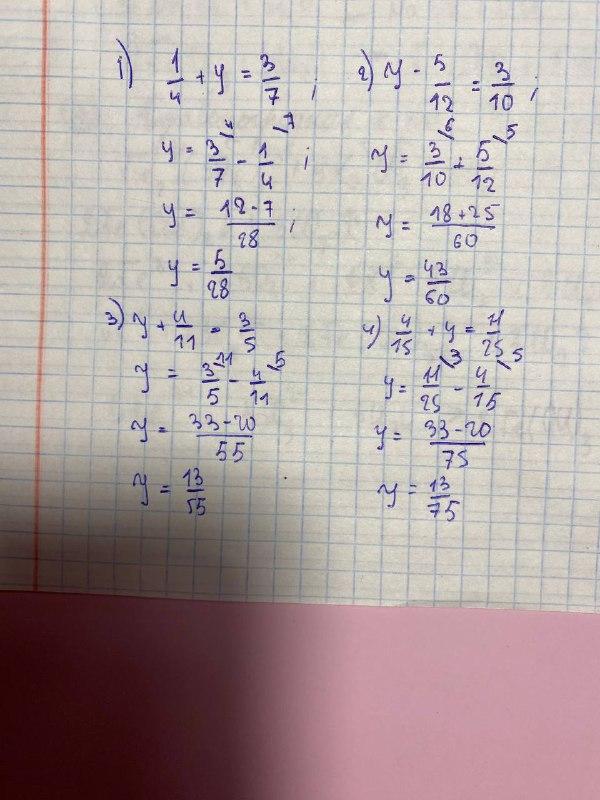 1) 1/4 + y = 3/7 ;
y = 3/7 /4 - 1/4 /7 ;
y = 12-7/28 ;
y = 5/28
2) y - 5/12 = 3/10 ;
y = 3/10 /6 + 5/12 /5
y = 18+25/60
y = 43/60
3) y + 4/11 = 3/5
y = 3/5 /11 - 4/11 /5
y = 33-20/55
y = 13/55
4) 4/15 + y = 11/25
y = 11/25 /3 - 4/15 /5
y = 33-20/75
y = 13/75